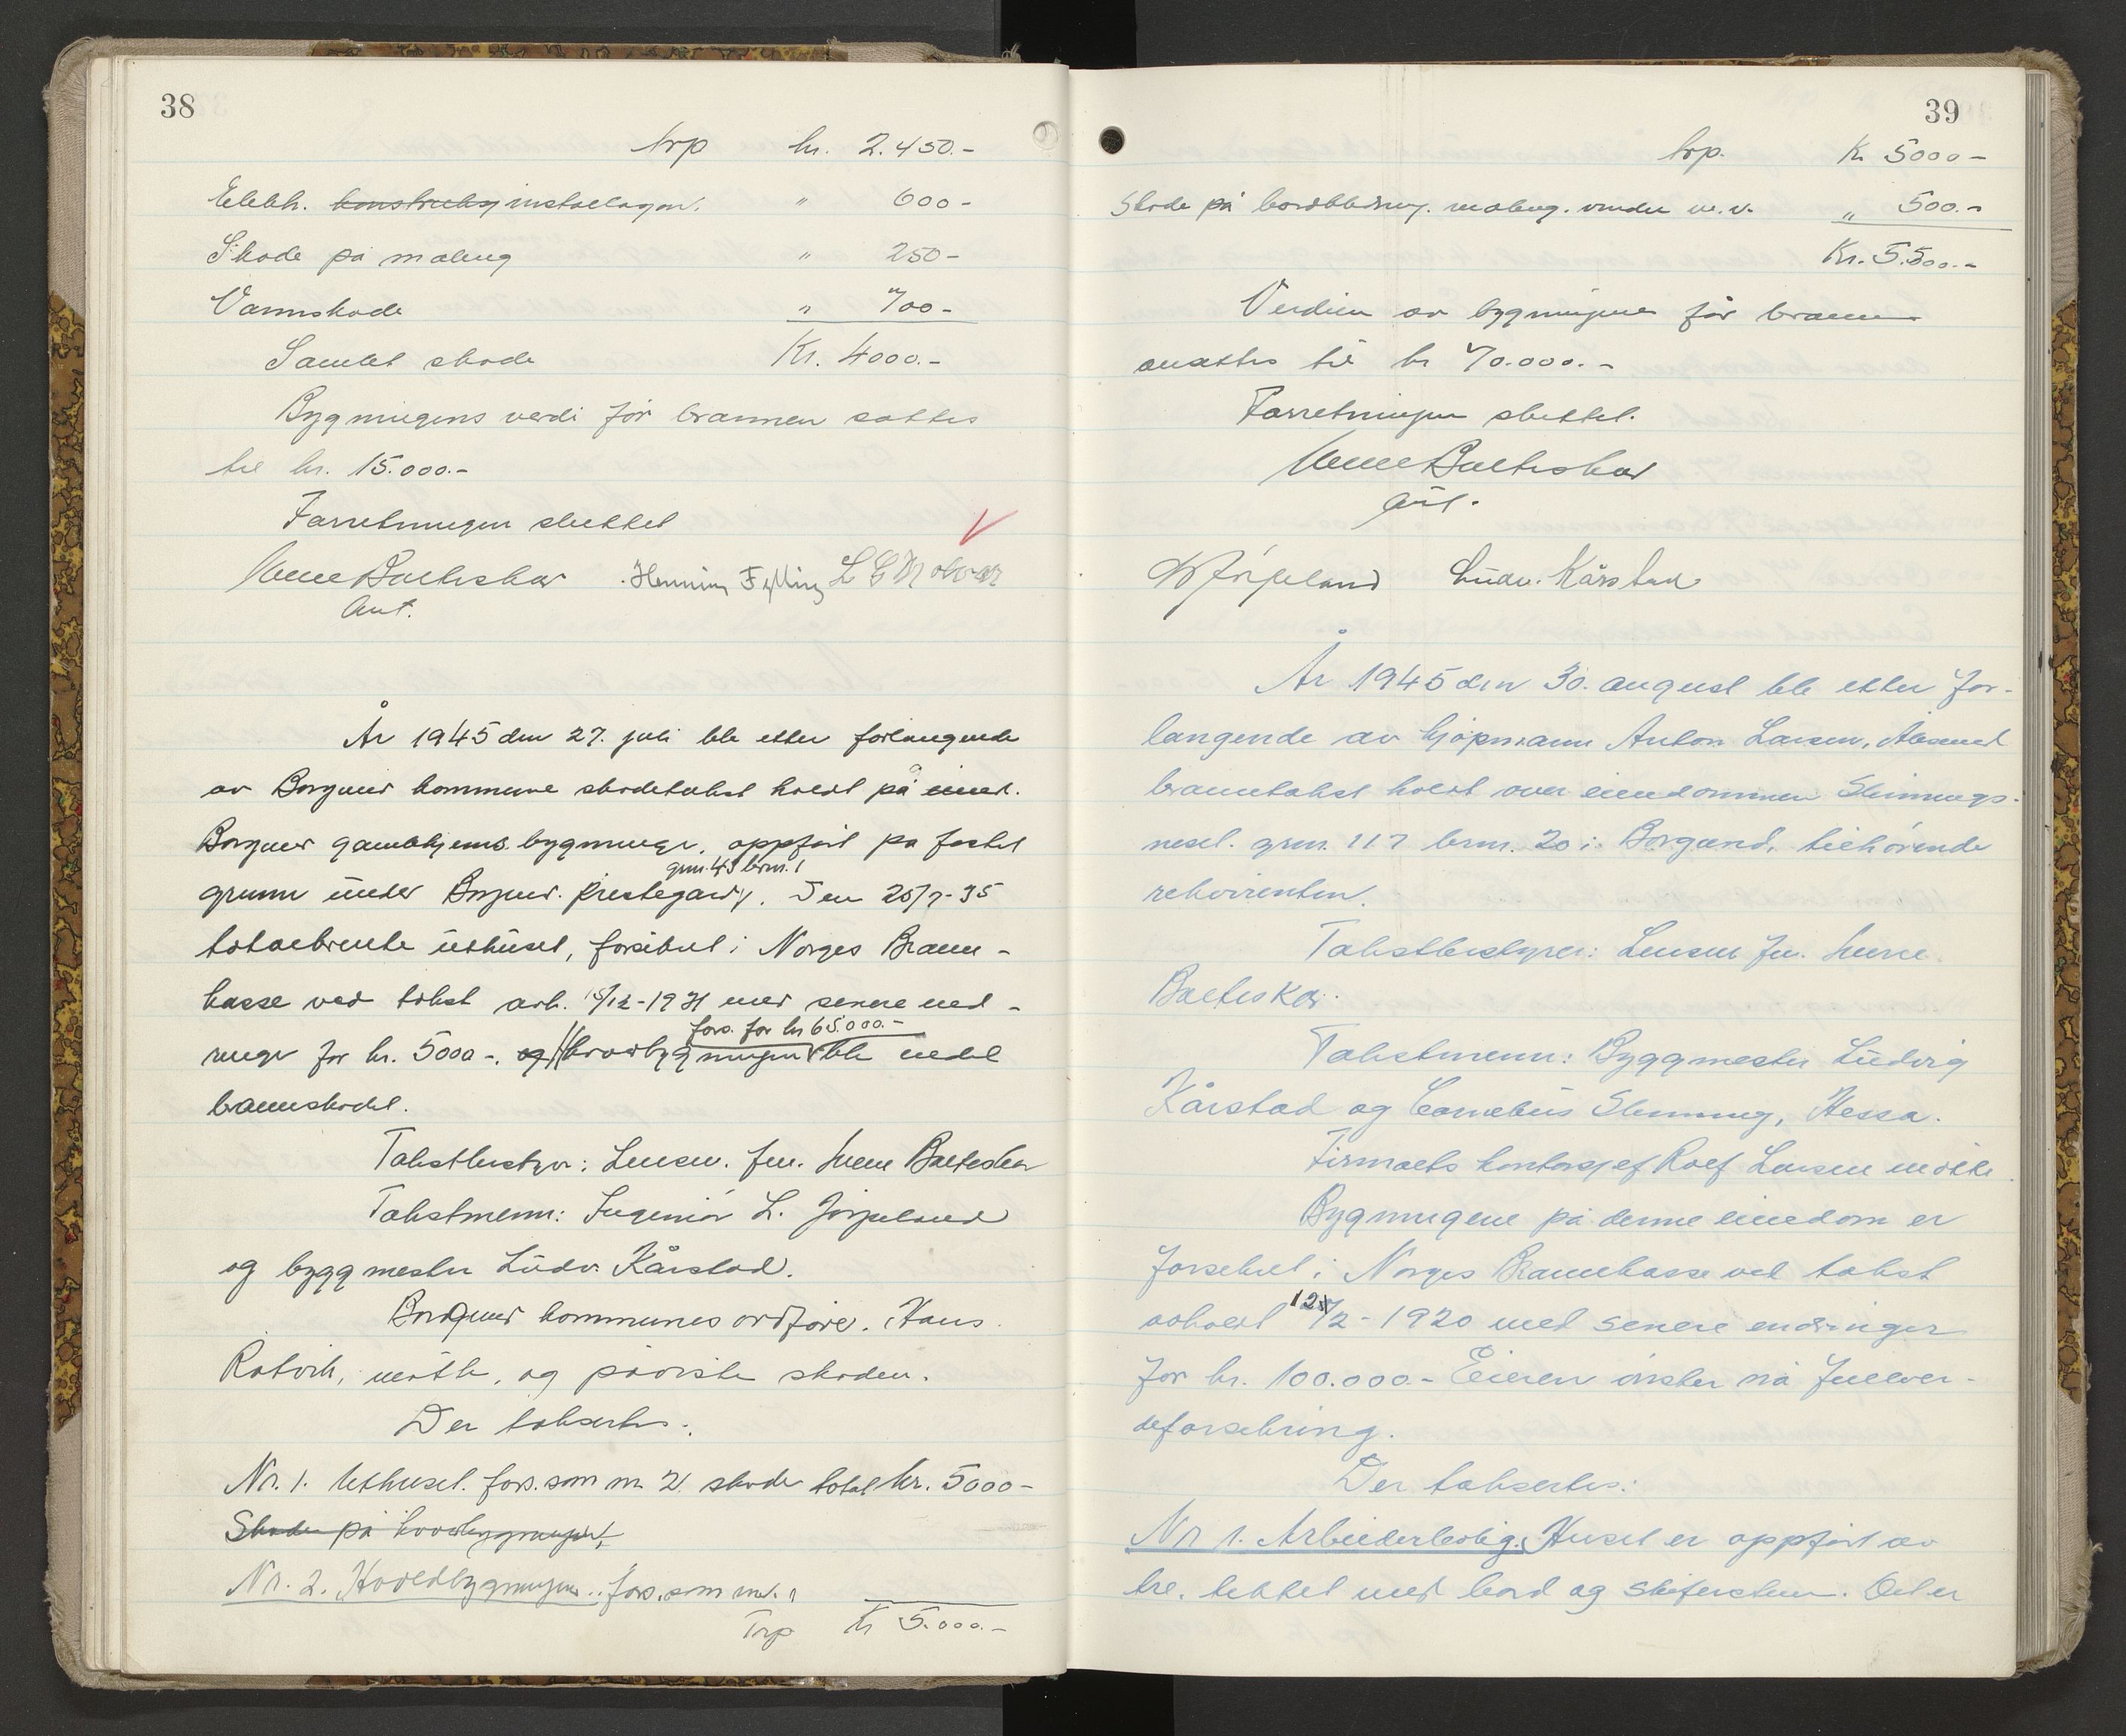 38
trp kr. 2.450.-
Elektr. konstruksj installasjon. " 600-
Skade på maling " 250-
Vannskade " 700-
Samlet skade Kr. 4000.-
Bygningens verdi før brannen sattes
til kr. 15.000.-
Forretningen sluttet
Balteskar Henning Fylling
Aut.
År 1945 den 27. juli ble etter forlangende
av Borgund kommune skadetakst holdt på eiend.
Borgund gamlehjems bygninger, oppført på festet
gnr. 45 brnr. 1
grunn under Borgund prestegard. Den 25/7-35
totalbrente uthuset, forsikret i Norges Brann-
kasse ved takst avh. 15/12-1931 med senere end-
fors. for kr 65.000.-
ringer for kr. 5000-. og hovedbygningen ble endel
brannskadet.
Takstbestyrer: Lensm. fm. Balteskar
Takstmenn: Ingeniør L. Jørpeland
og byggmester Ludv. Kårstad.
Borgund kommunes ordfører, Hans
Ratvik, møtte, og påviste skaden.
Der takserte:
Nr. 1. Uthuset. fors. som nr 2. skade total kr. 5000-
Skaden på hovedbygningen
Nr. 2. Hovedbygningen. fors. som nr. 1
Trp Kr 5.000.-
39
trp. Kr 5000-
Skade på bordkledning. maling. vinduer m.v. " 500.-
Kr. 5.500.-
Verdien av bygningene før brannen
ansattes til kr 70.000.-
Forretningen sluttet.
Balteskar
aut.
Jørpeland Ludv. Kårstad
År 1945 den 30. august ble etter for-
langende av kjøpmann Anton Larsen, Ålesund
branntakst holdt over eiendommen Slinnings-
neset. gnr. 117 brnr. 20 i Borgund, tilhørende
rekvirenten.
Takstbestyrer: Lensm fm.
Balteskar.
Takstmenn: Byggmester Ludvig
Kårstad og Cornelius Slinning, Hessa.
Firmaets kontorsjef Rolf Larsen møtte.
Bygningene på denne eiendom er
forsikret i Norges Brannkasse ved takst
avholdt 12/2-1920 med senere endringer
for kr. 100.000- Eieren ønsker nå fullver-
deforsikring.
Der takserte:
Nr 1. Arbeiderbolig. Huset er oppført av
tre. tekket med bord og skiferstein. Det er